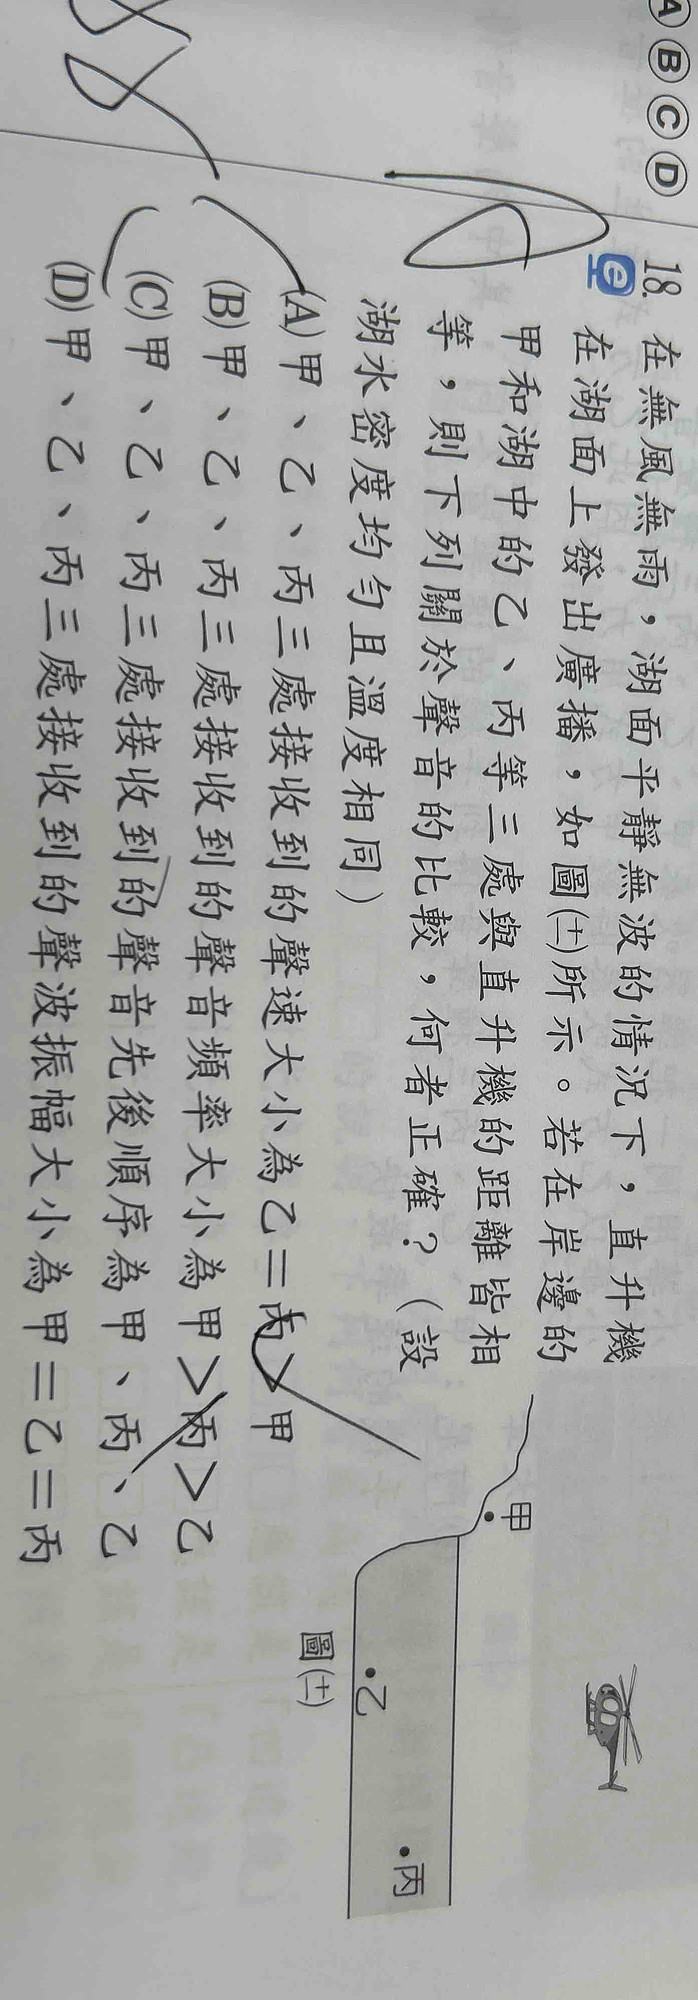 Ⓐ Ⓑ Ⓒ Ⓓ
18. 在無風無雨，湖面平靜無波的情況下，直升機
在湖面上發出廣播，如圖(十二)所示。若在岸邊的
甲和湖中的乙、丙等三處與直升機的距離皆相
等，則下列關於聲音的比較，何者正確？（設
湖水密度均勻且溫度相同）
(A)甲、乙、丙三處接收到的聲速大小為乙＝丙＞甲
(B)甲、乙、丙三處接收到的聲音頻率大小為甲＞丙＞乙
(C)甲、乙、丙三處接收到的聲音先後順序為甲、丙、乙
(D)甲、乙、丙三處接收到的聲波振幅大小為甲＝乙＝丙
甲
乙
丙
圖(十二)